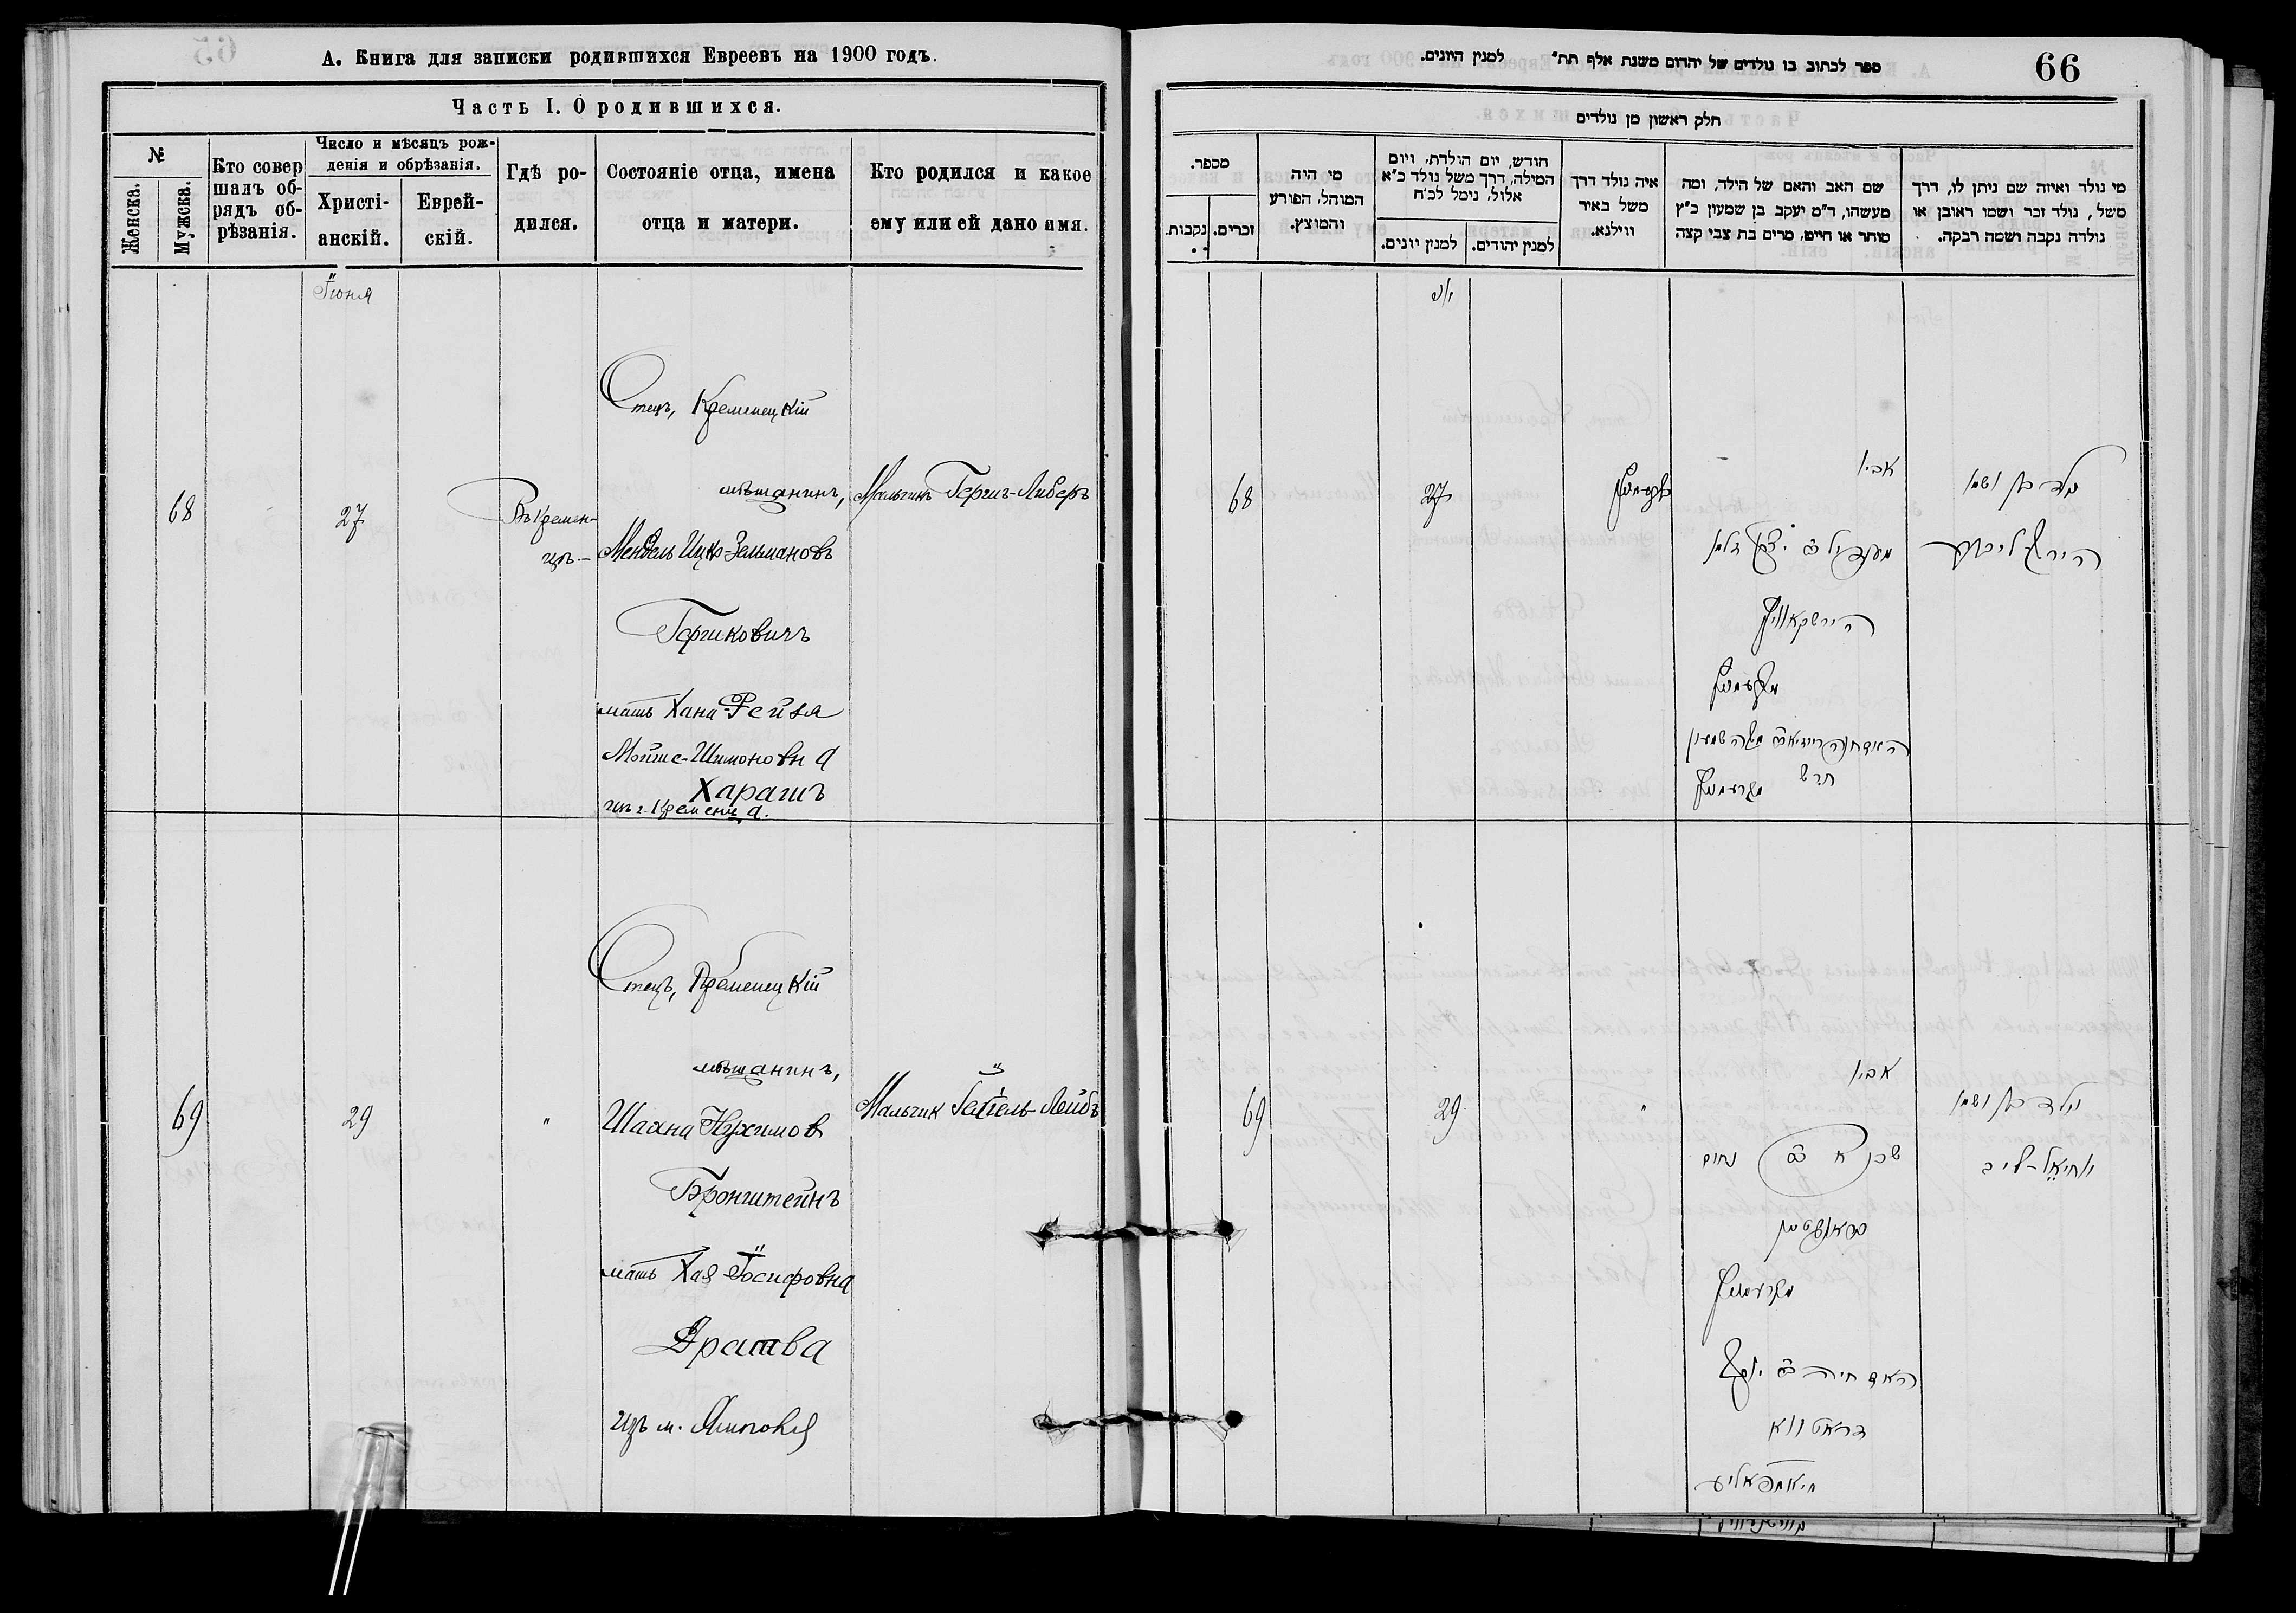 А. Книга для записки родившихся Евреевъ на 1900 годъ.
Часть I. О родившихся.
№
Женска.
Мужска.
Кто совер
шалъ об-
рядъ об-
рѣзанія.
Число и мѣсяцъ рож-
денія и обрѣзанія.
Христі-
анскій.
Еврей-
скій.
Гдѣ ро-
дился.
Состояніе отца, имена
отца и матери.
Кто родился и какое
ему или ей дано имя.
Іюня
68
27
Въ Кремен-
цѣ.-
Отецъ, Кременецкій
мѣщанинъ,
Мендель Ицко-Зельмановъ
Гершковичъ
мать Хана-Рейзя
Мойше-Шимоновна
Харашъ
изъ г. Кременца.
Мальчикъ Гершъ-Либеръ
69
29
"
Отецъ, Кременецкій
мѣщанинъ,
Шахна Нухимов
Бронштейнъ
мать Хая-Іосифовна
Дратва
изъ м. Ямполя
Мальчик Іехіель-Лейбъ
66
ספר לכתוב בו נולדים של יהדום משנת אלף תת״ למנין היונים.
חלק ראשון מן נולדים
מספר.
נקבות.
זכרים.
מי היה
המוהל, הפורע
והמוצץ.
חודש, יום הולדת, ויום
המילה, דרך משל נולד כ״א
אלול, נימל לכ׳ח
למנין יונים.
למנין יהודים.
איה נולד דרך
משל באיר
ווילנא.
שם האב והאם של הילד, ומה
מעשהו, ד״מ יעקב בן שמעון כ״ץ
סוחר או חייט, מרים בת צבי קצה
מי נולד ואיזה שם ניתן לו, דרך
משל, נולד זכר ושמו ראובן או
נולדה נקבה ושמה רבקה.
68
27
אביו
מענדיל ב יצחק זלמן
הירשקאוויץ
מקרעמניץ
חרש
מקרעמניץ
נולד בן ושמו
הירש ליבער
69
29
"
אביו
שכנא ב נחום
בראנשטיין
מקרעמניץ
האם חיה ב יוסף
דראטווא
מיאמפאליע
נולד בן ושמו
יחיאל-ליב